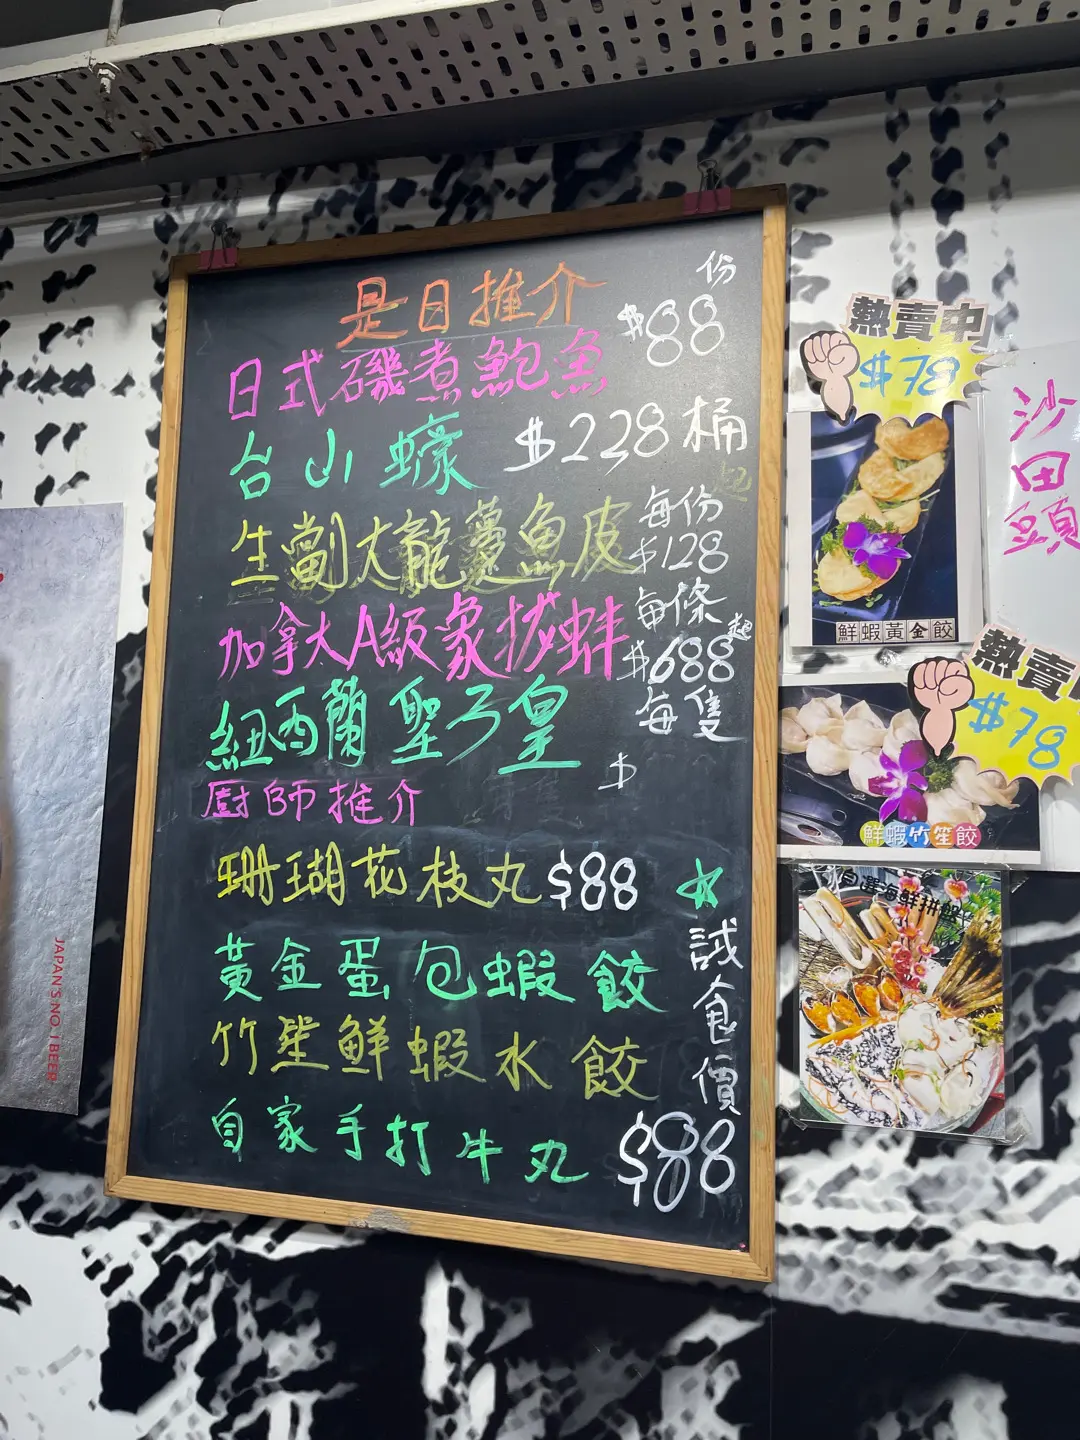 是日推介
份
日式磯煮鮑魚 $88
台山蠔 $228桶
起
每份
生劏大龍躉魚皮 $128
每條
加拿大A級象拔蚌 $688起
每隻
紐西蘭聖子皇 $
廚師推介
珊瑚花枝丸 $88
黃金蛋包蝦餃
竹笙鮮蝦水餃
自家手打牛丸 $88
試食價
熱賣中
$78
鮮蝦黃金餃
沙田
頭
熱賣
$78
鮮蝦竹笙餃
自選海鮮拼盤
JAPAN'S NO.1 BEER